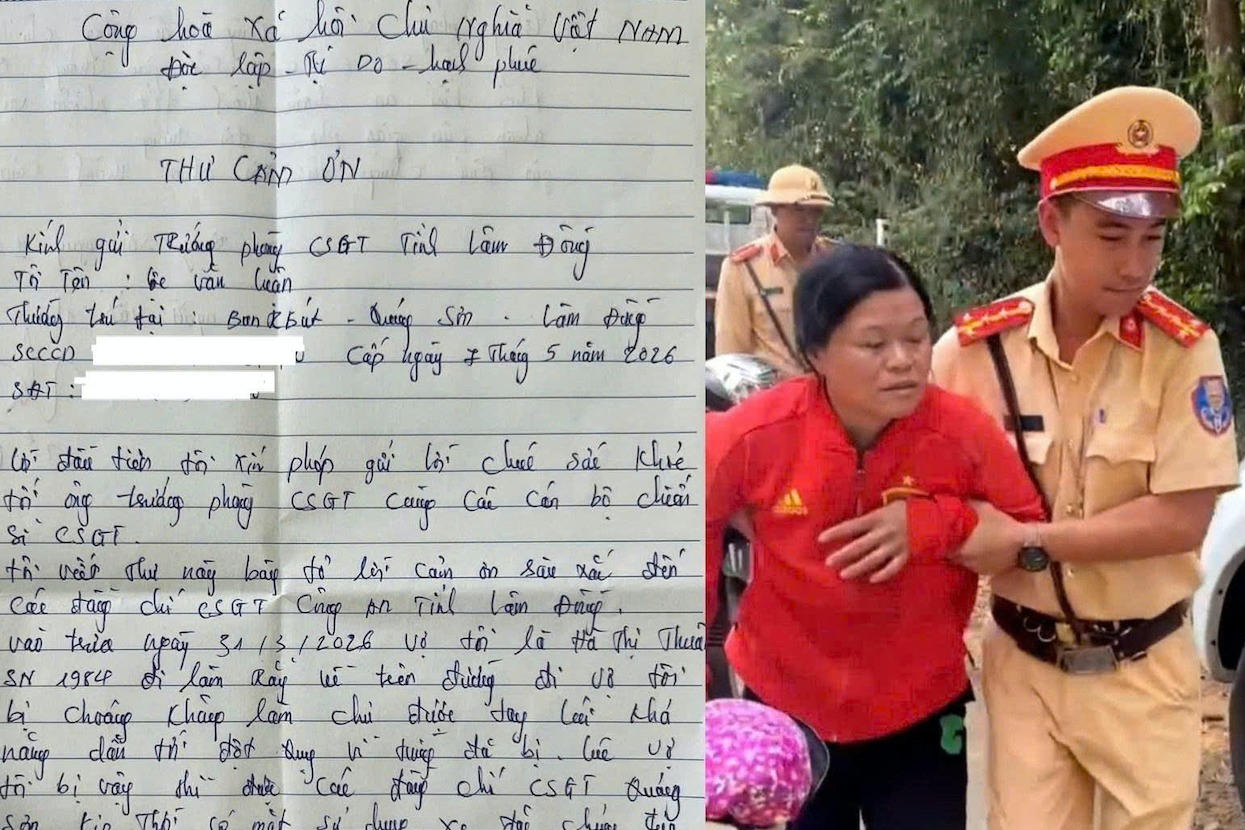 Cộng hoà xá hôi Chủ nghĩa Vật NAM
Độc lập - Tự Do - hạnh phúc
THƯ CẢM ƠN
Kính gửi Trưởng phòng CSGT Tỉnh Lâm Đồng
Tôi Tên : văn luân
Thường trú tại : Quảng Sơn - Lâm Đồng
SCCCD Cấp ngày 7 Tháng 5 năm 2026
SĐT :
lời đầu tiên tôi xin phép gửi lời chúc sức khỏe
tới ông trưởng phòng CSGT cùng các cán bộ chiến
sĩ CSGT.
tôi viết thư này bày tỏ lời cảm ơn sâu sắc đến
các đồng chí CSGT Công AN Tỉnh Lâm Đồng.
vào trưa ngày 31/3/2026 vợ tôi là Hà Thị Thuả
SN 1984 đi làm Rẫy về trên đường đi vợ tôi
bị choáng không làm chủ được tay lái khả
năng dẫn tới đột quỵ vì từng đã bị. lúc vợ
tôi bị vậy thì được các đồng chí CSGT Quảng
Sơn kịp Thời có mặt sử dụng xe
adidas